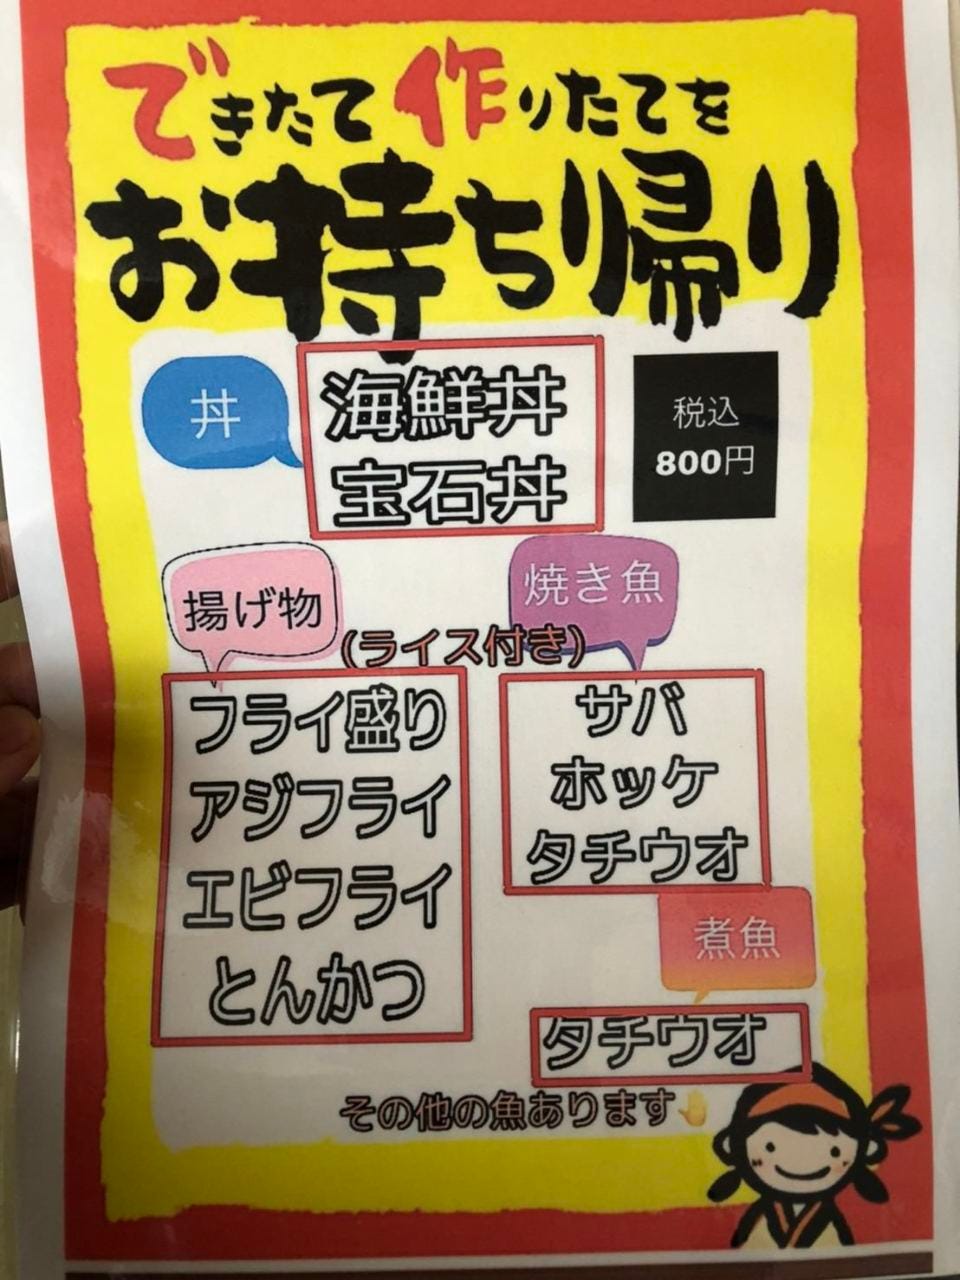 できたて作りたてを
お持ち帰り
丼
海鮮丼
宝石丼
税込
800円
揚げ物
焼き魚
(ライス付き)
フライ盛り
アジフライ
エビフライ
とんかつ
サバ
ホッケ
タチウオ
煮魚
タチウオ
その他の魚あります🤚